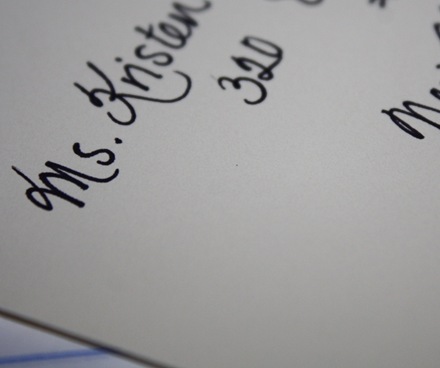 Ms. Kristen
320